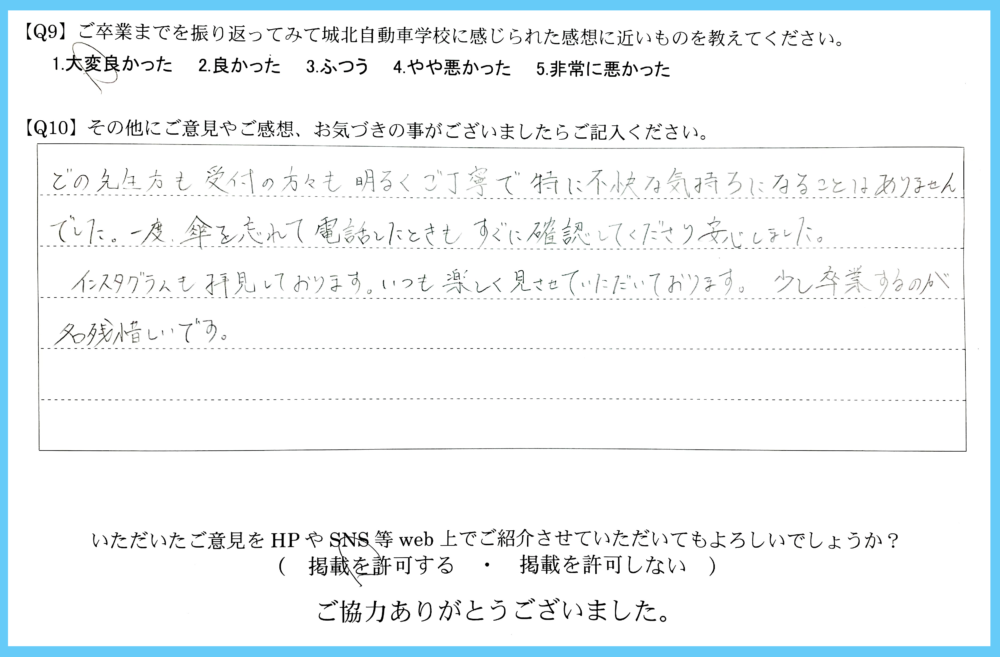 【Q9】ご卒業までを振り返ってみて城北自動車学校に感じられた感想に近いものを教えてください。
1.大変良かった 2.良かった 3.ふつう 4.やや悪かった 5.非常に悪かった
【Q10】その他にご意見やご感想、お気づきの事がございましたらご記入ください。
どの先生方も受付の方々も明るくご丁寧で特に不快な気持ちになることはありません
でした。一度、傘を忘れて電話したときもすぐに確認してくださり安心しました。
インスタグラムも拝見しております。いつも楽しく見させていただいております。少し卒業するのが
名残惜しいです。
いただいたご意見をHPやSNS等web上でご紹介させていただいてもよろしいでしょうか？
( 掲載を許可する ・ 掲載を許可しない )
ご協力ありがとうございました。